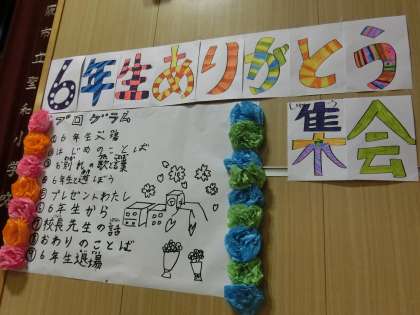 6年生ありがとう
集会
プログラム
①6年生入場
②はじめのことば
③お別れの歌
④6年生と遊ぼう
⑤プレゼントわたし
⑥6年生から
⑦校長先生の話
⑧おわりのことば
⑨6年生退場
阪市立聖和小学校